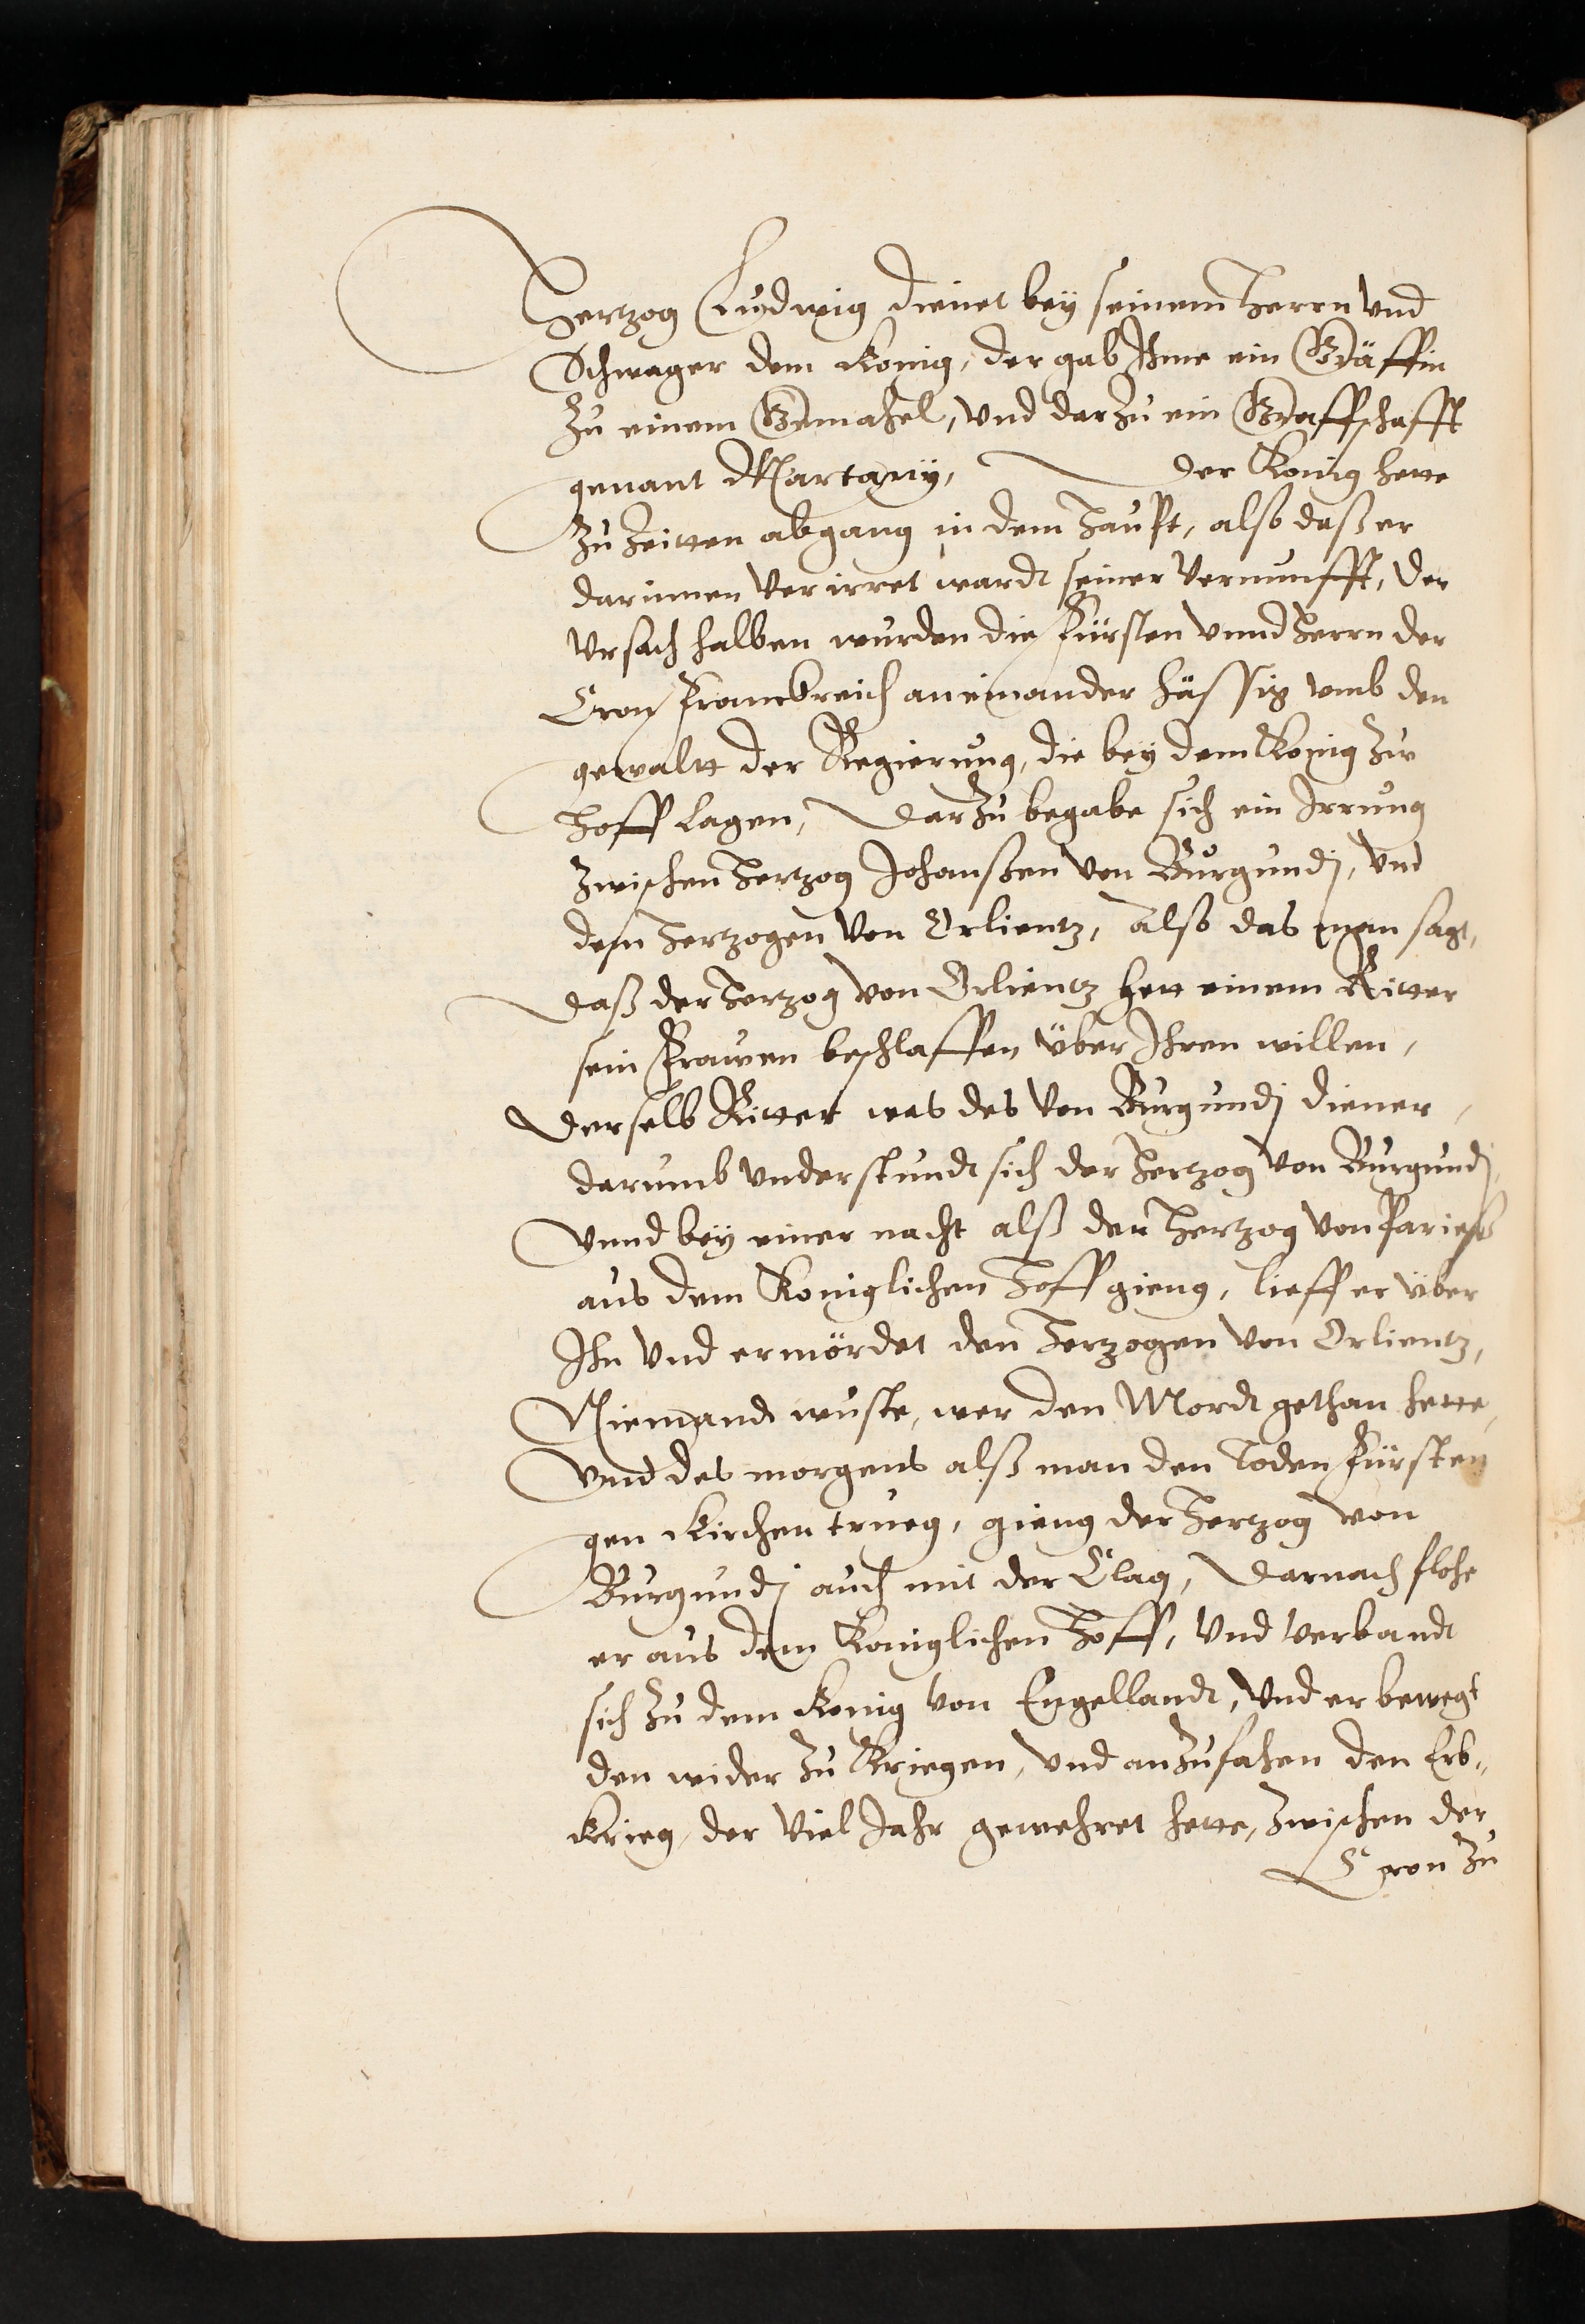 Hertzog Ludwig dienet bey seinem Herrn vnd
Schwager dem König, der gab Ihme ein Gräffin
zu einem Gemahel, vnd darzu ein Graffschafft
genant Martany, Der König hette
zu Zeitten abgang in dem Haupt, also daß er
darinnen verirret wardt seiner Vernunfft, der
Vrsach halben wurden die Fürsten vnnd Herrn der
Cron Franckreich aneinander hässig vmb den
gewaltt der Regierung, die bey dem König zu
Hoff lagen, Darzu begabe sich ein Irrung
zwischen Hertzog Johanßen von Burgundj, vnd
dem Hertzogen von Orlientz, also das man sagt,
daß der Hertzog von Orlientz hett einem Ritter
sein Frawen beschlaffen über Ihren willen,
Derselb Ritter was des von Burgundj diener,
darumb vnderstundt sich der Hertzog von Burgundj,
Vnnd bey einer nacht alß der Hertzog von Parieß
aus dem Königlichen Hoff gieng, lieff er über
Ihn vnd ermördet den Hertzogen von Orlientz,
Niemandt wuste, wer den Mordt gethan hette,
Vnd des morgens alß man den Toden Fürsten
gen Kirchen trueg, gieng der Hertzog von
Burgundj auch mit der Clag, Darnach flohe
er aus dem Königlichen Hoff, vnd verbandt
sich zu dem König von Engellandt, vnd er bewegt
den wider zu Kriegen, vnd anzufahen den Erb„
Krieg, der viel Jahr gewehret hette, zwischen der
Cron zu